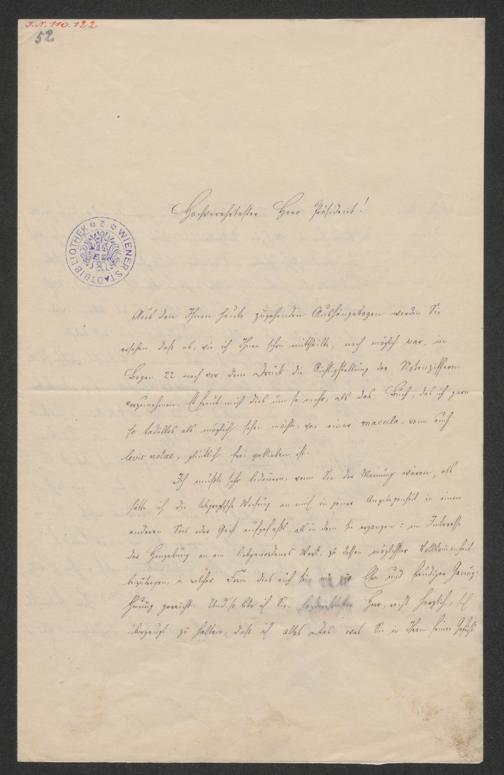 I.N. 110.122
52
Hochverehrtester Herr Präsident!
WIENER STADTBIBLIOTHEK
Aus den Ihnen heute zugehenden Aushängebogen werden Sie
ersehen, daß es, wie ich Ihnen schon mittheilte, noch möglich war, in
Bogen 22 noch vor dem Druck die Richtigstellung der Notenziffern
vorzunehmen. Es freut mich dies um so mehr, als das Buch, das ich gern
so tadellos als möglich sehen möchte, von einer macula, wenn auch
levis notae, glücklich frei geblieben ist.
Ich möchte sehr bedauern, wenn Sie der Meinung wären, als
hätte ich die telegraphische Weisung an mich in jener Angelegenheit in einem
anderen Sinn oder Geist aufgefaßt, als in dem sie ergangen: im Interesse
der Hingebung an ein liebgewordenes Werk, zu dessen möglichster Vollkommenheit
beizutragen, in welcher Form dies auch sei, mir zur Ehre und freudigen Genug-
thuung gereicht. Und so bitte ich Sie, Herr, recht herzlich, sich
überzeugt zu halten, daß ich alles das, was Sie in Ihrem feinen Gefühl